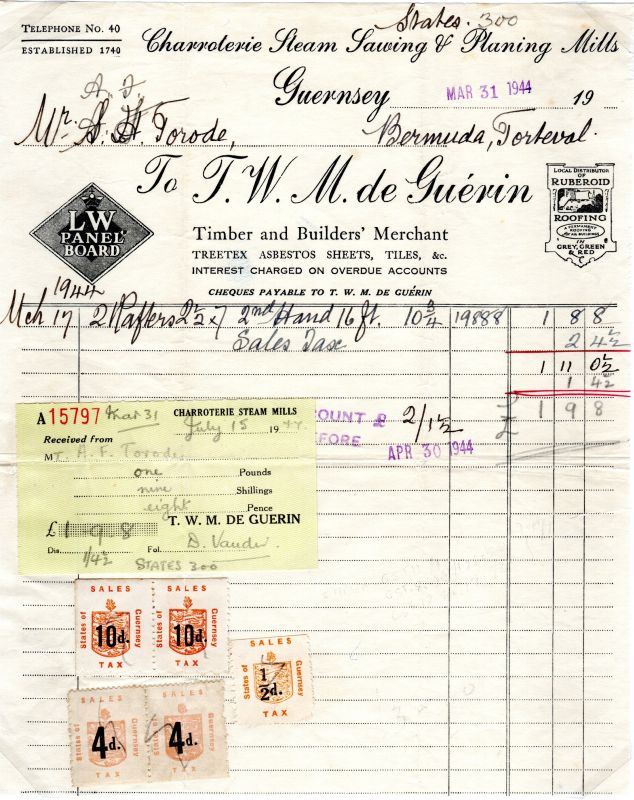 States. 300
TELEPHONE No. 40
ESTABLISHED 1740
Charroterie Steam Sawing & Planing Mills
Guernsey MAR 31 1944 19
A. F.
Mr. S. H. Torode, Bermuda, Torteval.
To T. W. M. de Guérin
LW
PANEL
BOARD
Timber and Builders' Merchant
TREETEX ASBESTOS SHEETS, TILES, &c.
INTEREST CHARGED ON OVERDUE ACCOUNTS
CHEQUES PAYABLE TO T. W. M. DE GUÉRIN
LOCAL DISTRIBUTOR
OF
RUBEROID
ROOFING
A PERMANENT
ROOFING
FOR ALL BUILDINGS
IN
GREY, GREEN
& RED
1944
Mch 17 2 Rafters 2½ x 7 2nd Hand 16 ft. 10¾ 19888 1 8 8
Sales Tax 2 4½
1 11 0½
1 4½
£ 1 9 8
COUNT 2/1½
FORE APR 30 1944
A 15797 Mar 31 CHARROTERIE STEAM MILLS
July 15 1944.
Received from
Mr. A. F. Torode
one Pounds
nine Shillings
eight Pence
£ 1 9 8 T. W. M. DE GUERIN
Dis. 1/4½ Fol. D. Vaudin
STATES 300
SALES
States of Guernsey
10d.
TAX
SALES
States of Guernsey
10d.
TAX
SALES
States of Guernsey
½d.
TAX
SALES
States of Guernsey
4d.
TAX
SALES
States of Guernsey
4d.
TAX